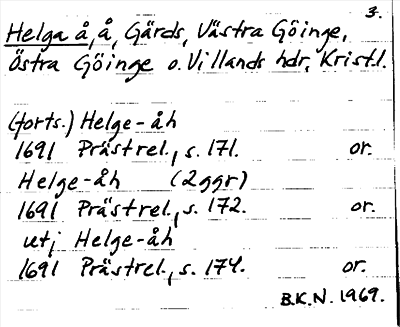 3.
Helga å, å, Gärds, Västra Göinge,
Östra Göinge o. Villands hdr, Krist.l.
(forts.) Helge-åh
1691 Prästrel., s. 171. or.
Helge-åh (2 ggr)
1691 Prästrel., s. 172. or.
utj Helge-åh
1691 Prästrel., s. 174. or.
B.K.N. 1969.